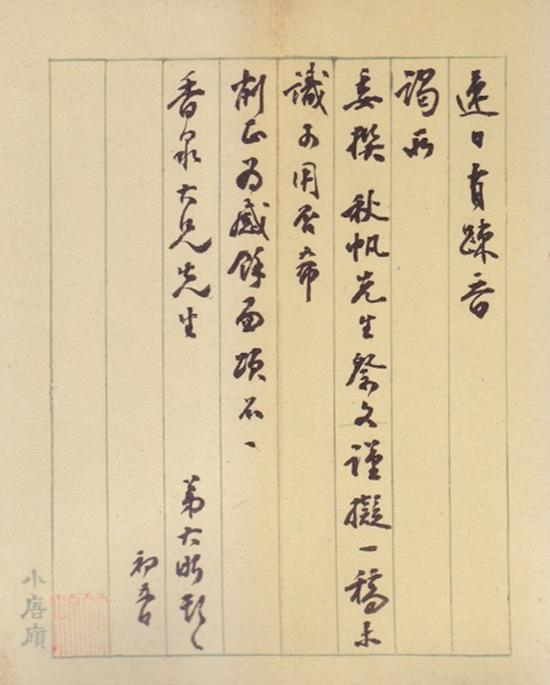 連日有疎晉
謁承
委撰秋帆先生祭文謹擬一稿未
識可用否希
削正為感餘面頃不一
香泉大兄先生
弟大昕頓首
初五日
小唐